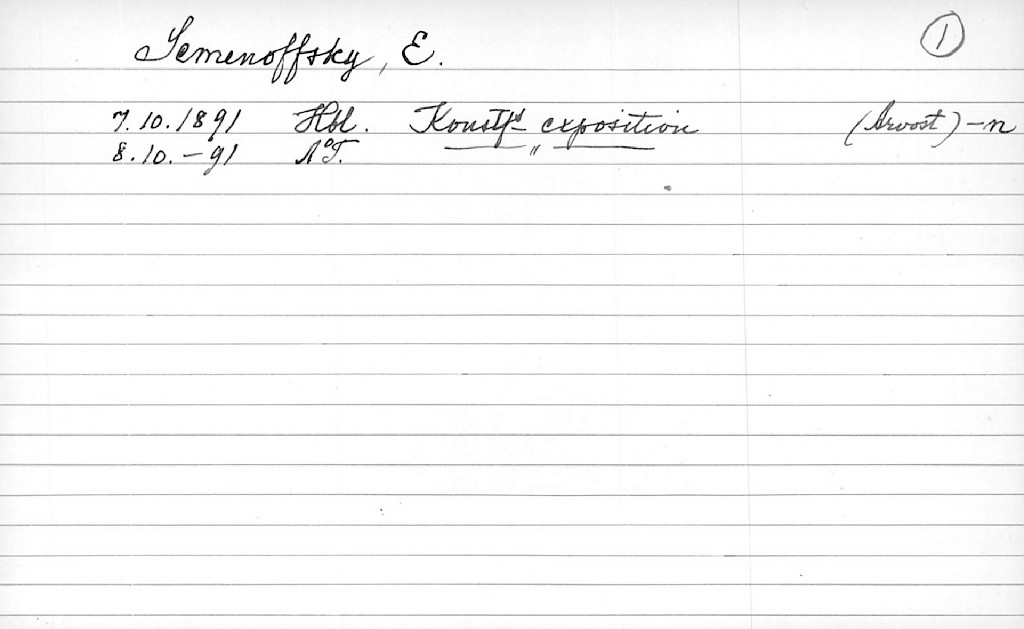 Semenoffsky, E. 1
7.10.1891 Hbl. Konstf:s exposition (Arvost) -n
8.10.-91 ÅT. — " —